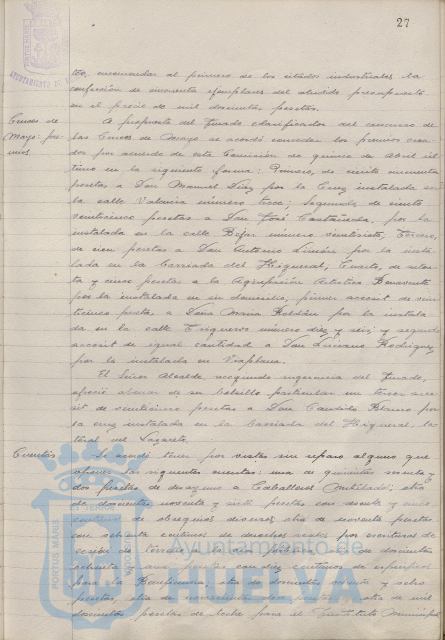 27
AYUNTAMIENTO DE
tos, encomendar al primero de los citados industriales la
confección de cincuenta ejemplares del aludido presupuesto
en el precio de mil doscientas pesetas.
Cruces de
Mayo: pre-
mios.
A propuesta del Jurado clasificador del concurso de
las Cruces de Mayo se acordó conceder los premios crea-
dos por acuerdo de esta Comisión de quince de Abril úl-
timo en la siguiente forma: Primero, de ciento cincuenta
pesetas a Don Manuel Díaz por la Cruz instalada en
la calle Valencia número trece; Segundo, de ciento
veinticinco pesetas a Don José Castañeda, por la
instalada en la calle Bejar número veintisiete; Tercero,
de cien pesetas a Don Antonio Limón por la insta-
lada en la Barriada del Higueral; Cuarto, de seten-
ta y cinco pesetas a la Agrupación Artística Benavente
por la instalada en su domicilio, primer accesit de vein-
ticinco pesetas, a Doña María Roldán por la instala-
da en la calle Trigueros número diez y seis; y segundo
accesit de igual cantidad a Don Luciano Rodríguez,
por la instalada en Viaplana.
El Señor Alcalde, recogiendo sugerencia del Jurado,
ofreció abonar de su bolsillo particular un tercer acce-
sit de veinticinco pesetas a Don Candido Blanco por
la cruz instalada en la Barriada del Higueral, la-
teral del Lazareto.
Cuentas
Se acordó tener por vistas sin reparo alguno que
oponer las siguientes cuentas: una de quinientas sesenta y
dos pesetas de desayuno a Caballeros Mutilados; otra
de doscientas noventa y siete pesetas con sesenta y cinco
céntimos de obsequios diversos; otra de noventa pesetas
con ochenta céntimos de derechos reales por escrituras de
cesión de terreno
de doscientas
ochenta y una pesetas con diez céntimos de específicos
para la Beneficencia; otra de doscientas ochenta y ocho
pesetas, otra de
pesetas, otra de mil
doscientas pesetas de leche para el Instituto Municipal
PORTUS MARIS
Ayuntamiento de
HUELVA